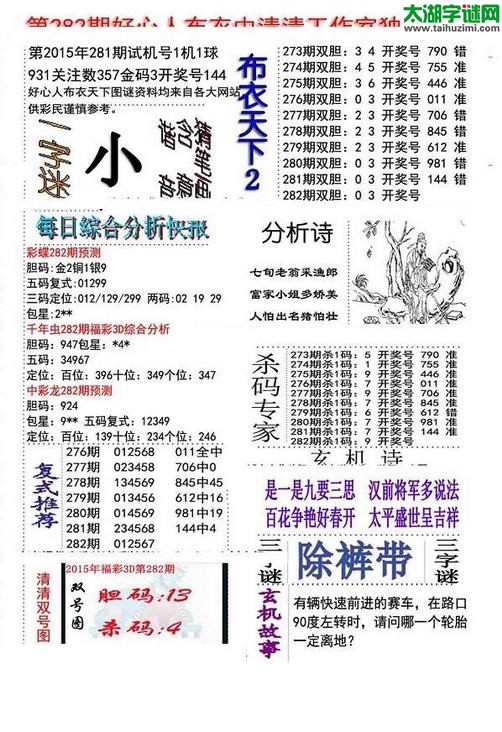 太湖字谜网
www.taihuzimi.com
第282期好心人布衣中清清工作室独
第2015年281期试机号1机1球
931关注数357金码3开奖号144
好心人布衣天下图谜资料均来自各大网站
供彩民谨慎参考。
一字谜
小
布衣天下2
273期双胆：3 4 开奖号 790 错
274期双胆：4 5 开奖号 755 准
275期双胆：3 6 开奖号 446 准
276期双胆：0 3 开奖号 011 准
277期双胆：2 3 开奖号 706 错
278期双胆：2 3 开奖号 845 错
279期双胆：2 3 开奖号 612 准
280期双胆：0 3 开奖号 981 错
281期双胆：0 3 开奖号 144 错
282期双胆：0 3 开奖号
每日综合分析快报
彩蝶282期预测
胆码：金2铜1银9
五码复式：01299
三码定位：012/129/299 两码：02 19 29
包星：2**
千年虫282期福彩3D综合分析
胆码：947包星：*4*
五码：34967
定位：百位：396十位：349个位：347
中彩龙282期预测
胆码：924
包星：9** 五码复式：12349
定位：百位：139十位：234个位：246
分析诗
七旬老翁采渔郎
富家小姐多娇美
人怕出名猪怕壮
杀码专家
273期杀1码：5 开奖号 790 准
274期杀1码：1 开奖号 755 准
275期杀1码：9 开奖号 446 准
276期杀1码：7 开奖号 011 准
277期杀1码：9 开奖号 706 准
278期杀1码：7 开奖号 845 准
279期杀1码：6 开奖号 612 错
280期杀1码：7 开奖号 981 准
281期杀1码：9 开奖号 144 准
282期杀1码：9 开奖号
复式推荐
276期 012568 011全中
277期 023458 706中0
278期 134569 845中45
279期 013456 612中16
280期 014569 981中19
281期 234568 144中4
282期 012567
玄机诗
是一是九要三思 汉前将军多说法
百花争艳好春开 太平盛世呈吉祥
三字谜
除裤带
三字谜
清清双号图
2015年福彩3D第282期
双号图
胆码：13
杀码：4
玄机故事
有辆快速前进的赛车，在路口
90度左转时，请问哪一个轮胎
一定离地？